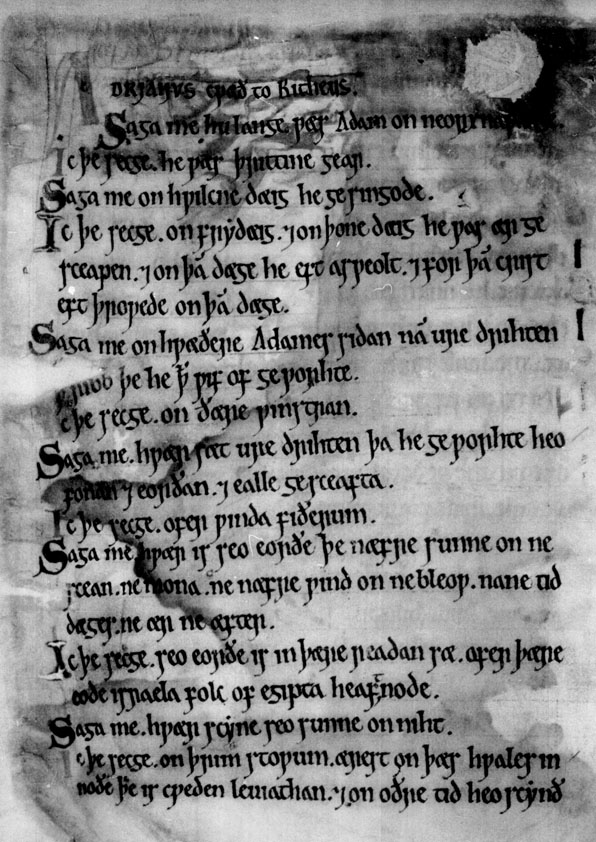 DRIANVS cƿæð to Ritheus.
Saga me hu lange ƿæs Adam on neorxna
Ic þe secge. he ƿæs þrittine gear.
Saga me on hƿilcne dæig he gesingode.
Ic þe secge. on frigdæig. ⁊ on þone dæig he ƿæs ær ge
sceapen. ⁊ on þā dæge he eft asƿealt. ⁊ for þā crist
eft þroƿede on þā dæge.
Saga me on hƿæðere Adames sidan nā ure drihten
þe he þ̄ ƿif of geƿorhte.
Ic þe secge. on ðære ƿinstran.
Saga me. hƿær sæt ure drihten þa he geƿorhte heo
fonan ⁊ eorðan. ⁊ ealle gesceafta.
Ic þe secge. ofer ƿinda fiðerum.
Saga me. hƿær is seo eorðe þe næfre sunne on ne
scean. ne mona. ne næfre ƿind on ne bleoƿ. nane tid
dæges. ne ær ne æfter.
Ic þe secge. seo eorðe is in þære readan sæ. ofer þære
eode israela folc of egipta heaftnode.
Saga me. hƿær scyne seo sunne on niht.
Ic þe secge. on þrim stoƿum. ærest on þæs hƿales in
noðe þe is cƿeden leuiathan. ⁊ on oðre tid heo scynð